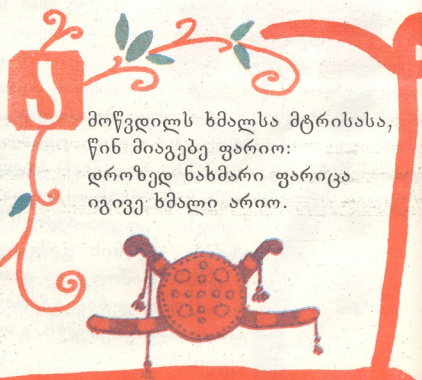 ა
მოწვდილს ხმალსა მტრისასა,
წინ მიაგებე ფარიო:
დროზედ ნახმარი ფარიცა
იგივე ხმალი არიო.